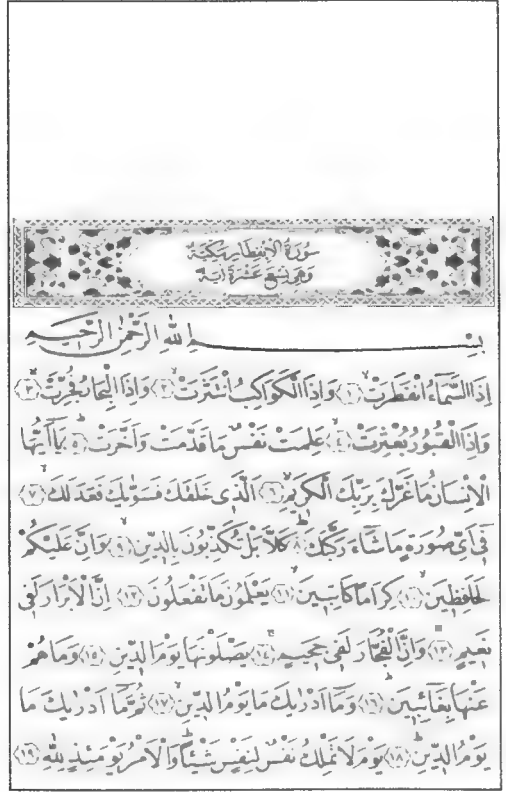 سُورَةُ الْاِنْفِطَارِ مَكِّيَّةٌ
وَهِيَ تِسْعَ عَشْرَةَ اٰيَةً
بِسْمِ اللّٰهِ الرَّحْمٰنِ الرَّحِيمِ
اِذَا السَّمَٓاءُ انْفَطَرَتْۙ ﴿١﴾ وَاِذَا الْكَوَاكِبُ انْتَثَرَتْۙ ﴿٢﴾ وَاِذَا الْبِحَارُ فُجِّرَتْۙ ﴿٣﴾
وَاِذَا الْقُبُورُ بُعْثِرَتْۙ ﴿٤﴾ عَلِمَتْ نَفْسٌ مَا قَدَّمَتْ وَاَخَّرَتْۜ ﴿٥﴾ يَٓا اَيُّهَا
الْاِنْسَانُ مَا غَرَّكَ بِرَبِّكَ الْكَرِيمِۙ ﴿٦﴾ اَلَّذ۪ي خَلَقَكَ فَسَوّٰيكَ فَعَدَلَكَۙ ﴿٧﴾
ف۪ٓي اَيِّ صُورَةٍ مَا شَٓاءَ رَكَّبَكَۜ ﴿٨﴾ كَلَّا بَلْ تُكَذِّبُونَ بِالدّ۪ينِۙ ﴿٩﴾ وَاِنَّ عَلَيْكُمْ
لَحَافِظ۪ينَۙ ﴿١٠﴾ كِرَامًا كَاتِب۪ينَۙ ﴿١١﴾ يَعْلَمُونَ مَا تَفْعَلُونَ ﴿١٢﴾ اِنَّ الْاَبْرَارَ لَف۪ي
نَع۪يمٍۚ ﴿١٣﴾ وَاِنَّ الْفُجَّارَ لَف۪ي جَح۪يمٍۚ ﴿١٤﴾ يَصْلَوْنَهَا يَوْمَ الدّ۪ينِ ﴿١٥﴾ وَمَا هُمْ
عَنْهَا بِغَٓائِب۪ينَۜ ﴿١٦﴾ وَمَٓا اَدْرٰيكَ مَا يَوْمُ الدّ۪ينِۙ ﴿١٧﴾ ثُمَّ مَٓا اَدْرٰيكَ مَا
يَوْمُ الدّ۪ينِۜ ﴿١٨﴾ يَوْمَ لَا تَمْلِكُ نَفْسٌ لِنَفْسٍ شَيْـًٔاۜ وَالْاَمْرُ يَوْمَئِذٍ لِلّٰهِ ﴿١٩﴾